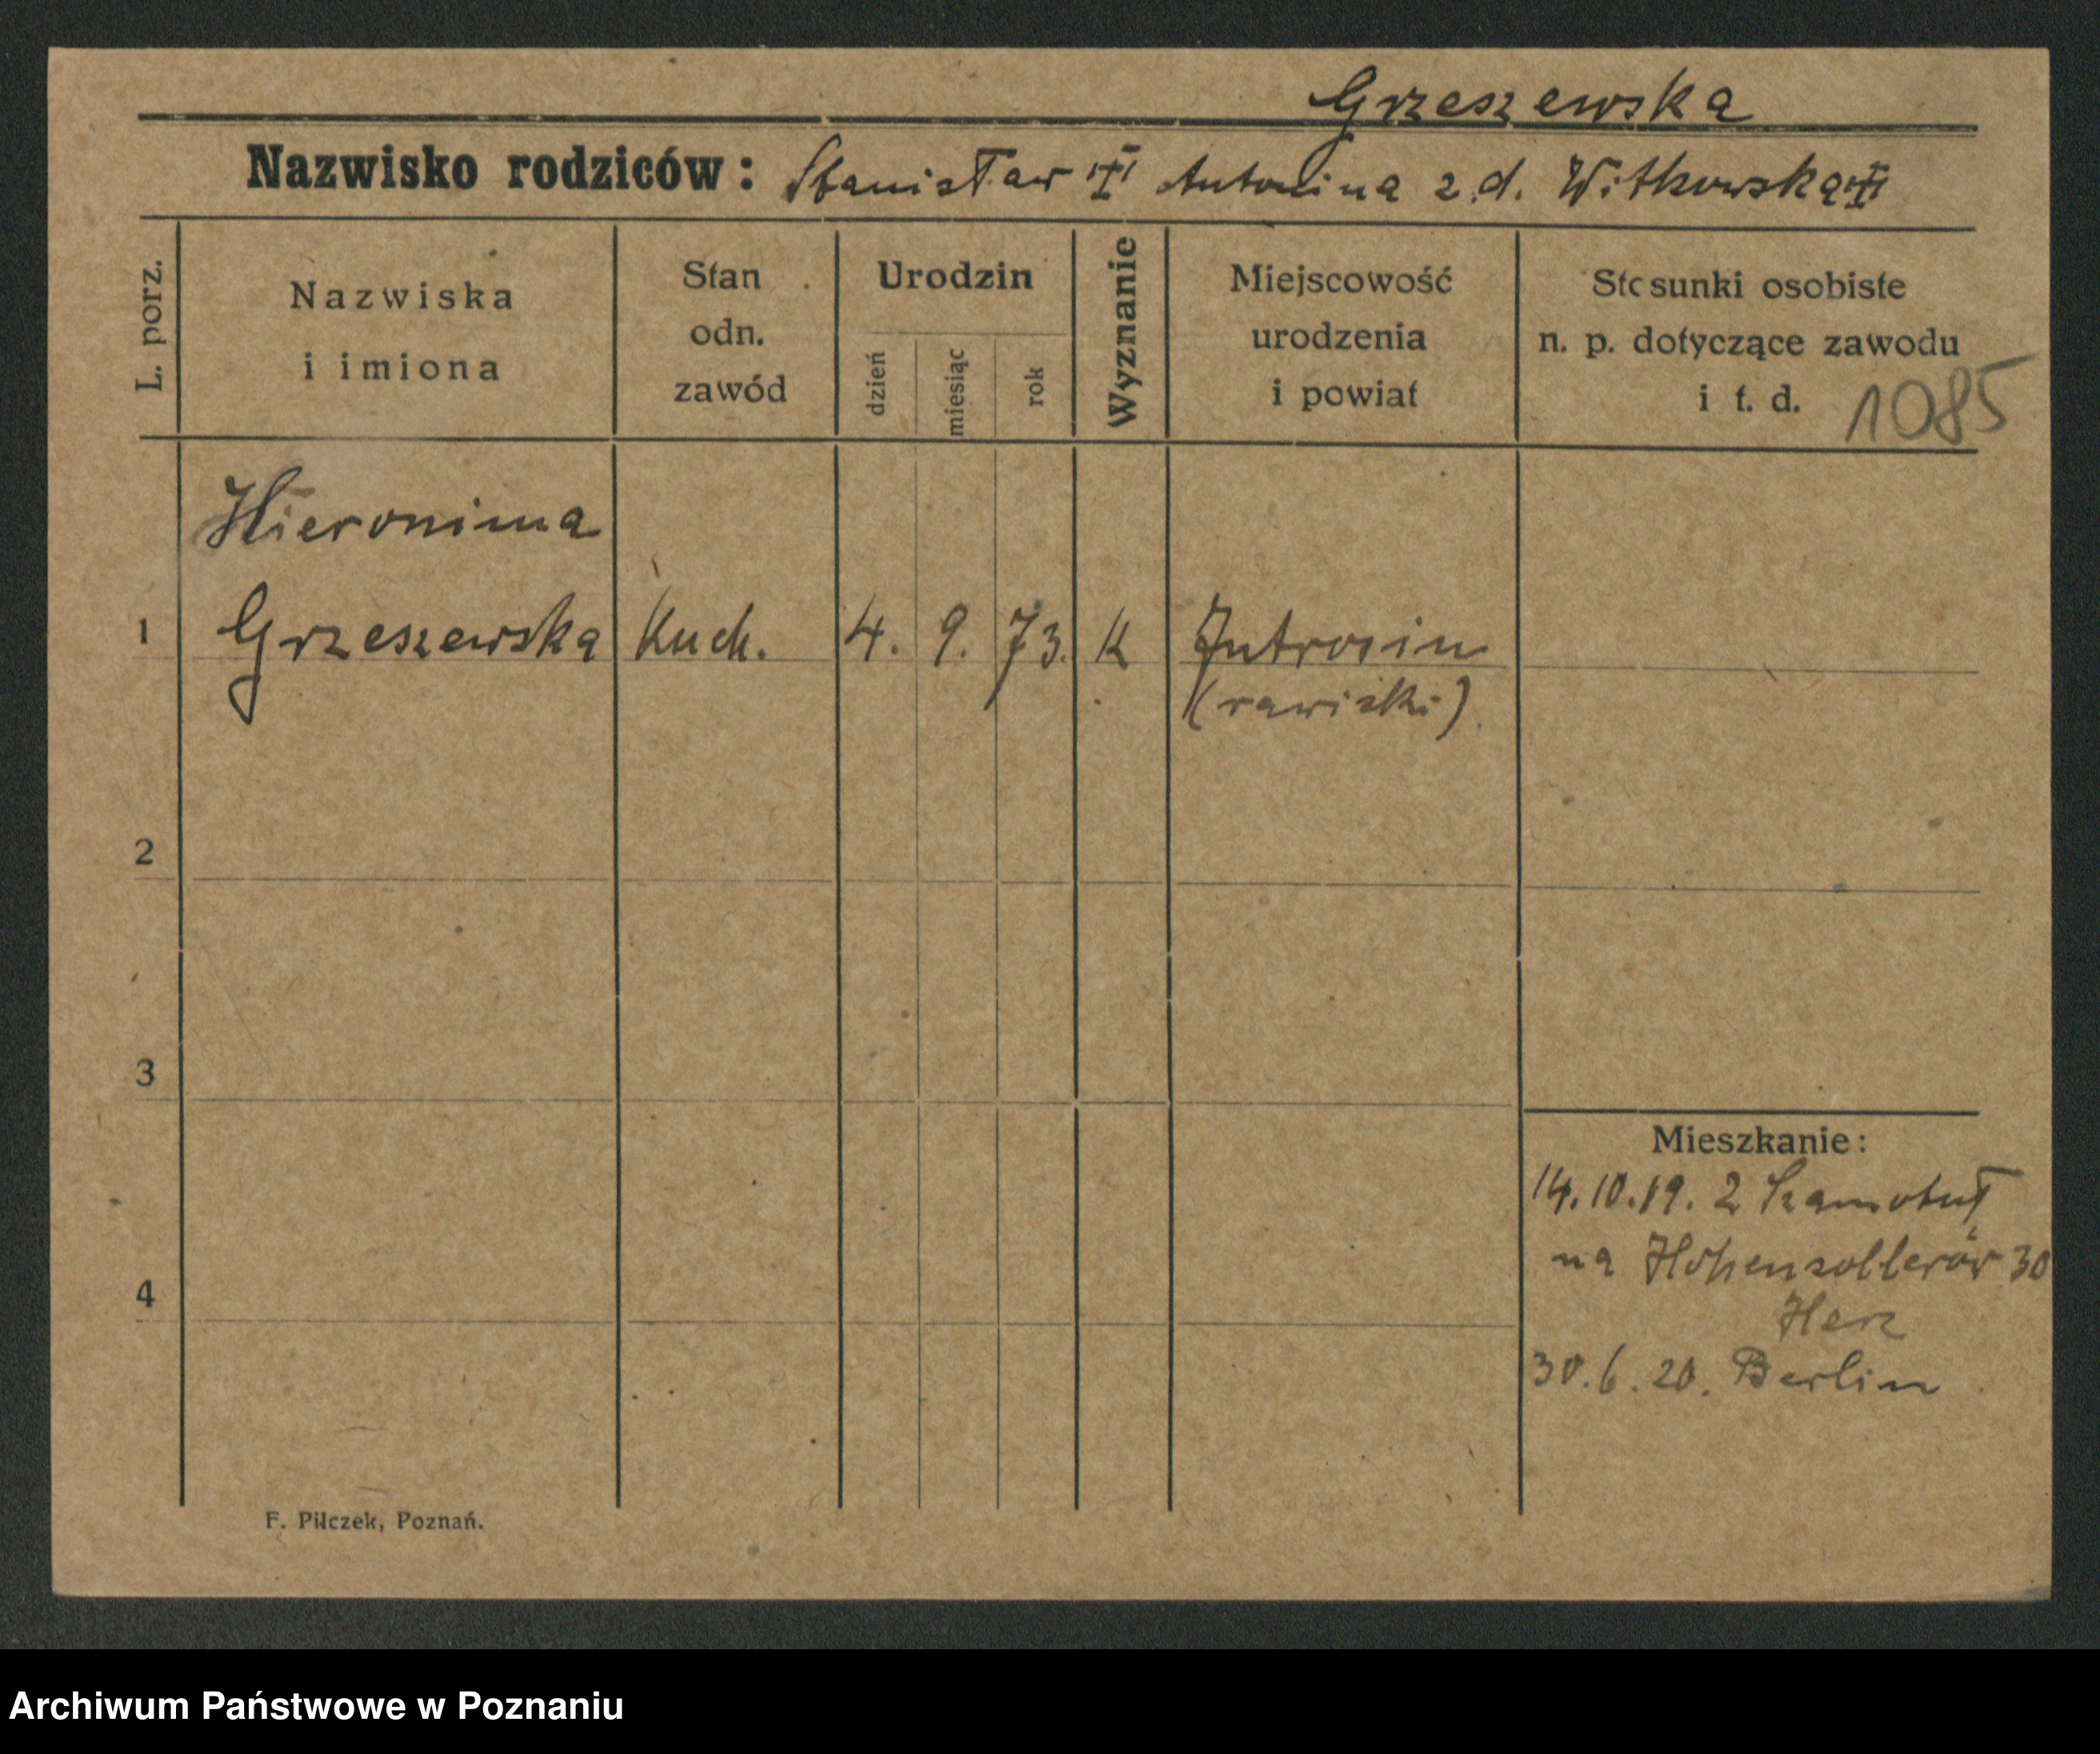 Grzeszewska
Nazwisko rodziców: Stanisław Antonina z.d. Witkowska
L. porz.
Nazwiska
i imiona
Stan
odn.
zawód
Urodzin
dzień
miesiąc
rok
Wyznanie
Miejscowość
urodzenia
i powiat
Stosunki osobiste
n. p. dotyczące zawodu
i t. d. 1085
Hieronima
1 Grzeszewska Kuch. 4. 9. 73. K Jutrosin
(rawiski)
2
3
4
Mieszkanie:
14.10.19. z Szamotuł
na Hohenzollerów 30
Herz
30.6.20. Berlin
F. Pilczek, Poznań.
Archiwum Państwowe w Poznaniu